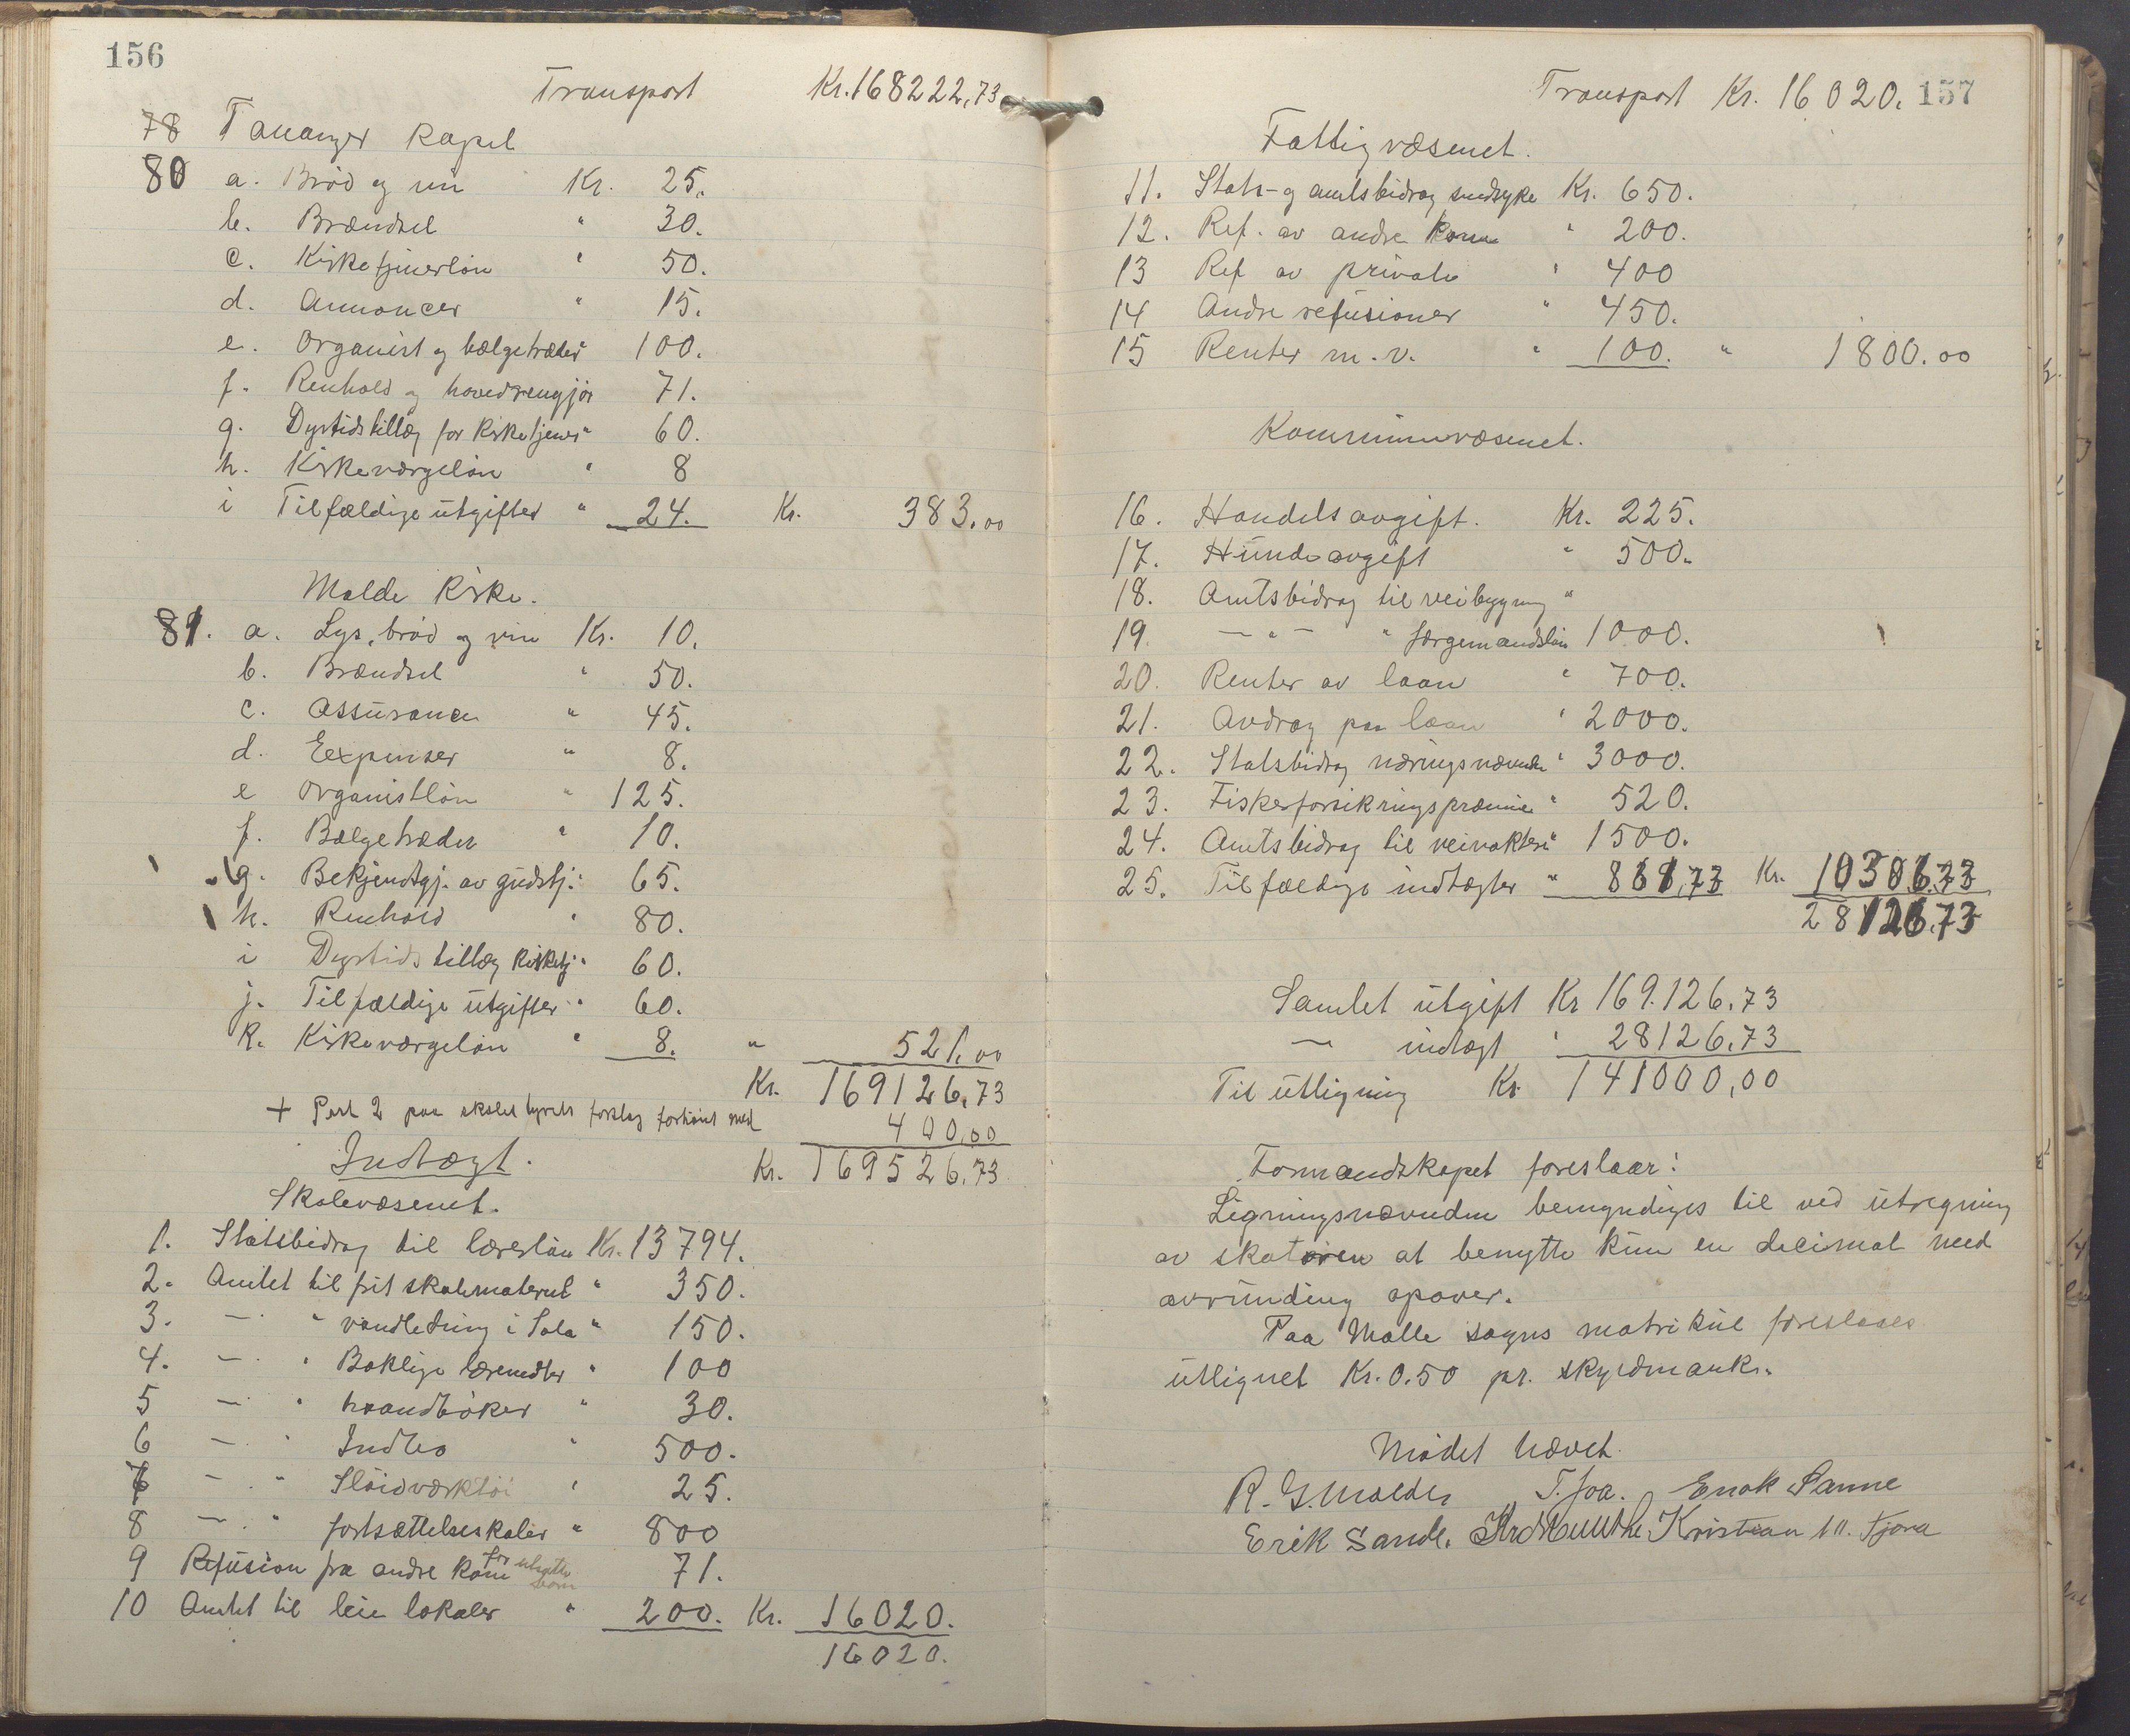 156
Transport Kr. 168222,73
78 Tananger kapel
80 a. Brød og vin Kr. 25.
b. Brændsel " 30.
c. Kirketjenerløn " 50.
d. Annoncer " 15.
e. Organist og bælgetræder " 100.
f. Renhold og hovedrengjør 71.
g. Dyrtidstillæg for kirketjener " 60.
h. Kirkeværgeløn " 8
i Tilfældige utgifter " 24. Kr. 383.00
Malde kirke.
81. a. Lys, brød og vin Kr. 10.
b. Brændsel " 50.
c. Assurance " 45.
d. Eexpenser " 8.
e Organistløn " 125.
f. Bælgetræder " 10.
g. Bekjendtgj. av gudstj. " 65.
h. Renhold " 80.
i Dyrtidstillæg kirketj " 60.
j. Tilfældige utgifter " 60.
k. Kirkeværgeløn " 8. " 521.00
Kr. 169126,73
+ Post 2 paa skolestyrets forslag forhøiet med 400,00
Indtægt. Kr. 169526,73
Skolevæsenet.
1. Statsbidrag til lærerløn Kr. 13794.
2. Amtet til frit skolemateriel " 350.
3. — " vandledning i Sola " 150.
4. — " Boklige læremidler " 100
5 — " haandbøker " 30.
6 — " Indbo " 500.
7 — " Sløidverktøi " 25.
8 — " fortsættelseskoler " 800
9 Refusion fra andre kom for utsatte barn 71.
10 Amtet til leie lokaler " 200. Kr. 16020.
16020.
Transport Kr. 16020. 157
Fattigvæsenet.
11. Stats- og amtsbidrag sindsyke Kr. 650.
12. Ref. av andre kom " 200.
13 Ref av private " 400
14 Andre refusioner " 450.
15 Renter m.v. " 100. " 1800.00
Kommunevæsenet.
16. Handelsavgift. Kr. 225.
17. Hundeavgift " 500.
18. Amtsbidrag til veibygning "
19. — " — " færgemandsløn 1000.
20. Renter av laan " 700.
21. Avdrag paa laan " 2000.
22. Statsbidrag næringsnævnden " 3000.
23. Fiskerforsikringspræmie " 520.
24. Amtsbidrag til veivoktere " 1500.
25. Tilfældige indtægter " 861,73 Kr. 10306.73
28126,73
Samlet utgift Kr 169.126,73
— indtægt " 28126,73
Til utligning Kr. 141000,00
Formandskapet foreslaar:
Ligningsnævnden bemyndiges til ved utregning
av skatøren at benytte kun en decimal med
avrunding opover.
Paa Malle sogns matrikul foreslaaes
utlignet Kr. 0.50 pr. skyldmark.
Mødet hævet.
R. G. Molde T. Joa. Enok Sanne
Erik Sande. Kristian M. Tjora